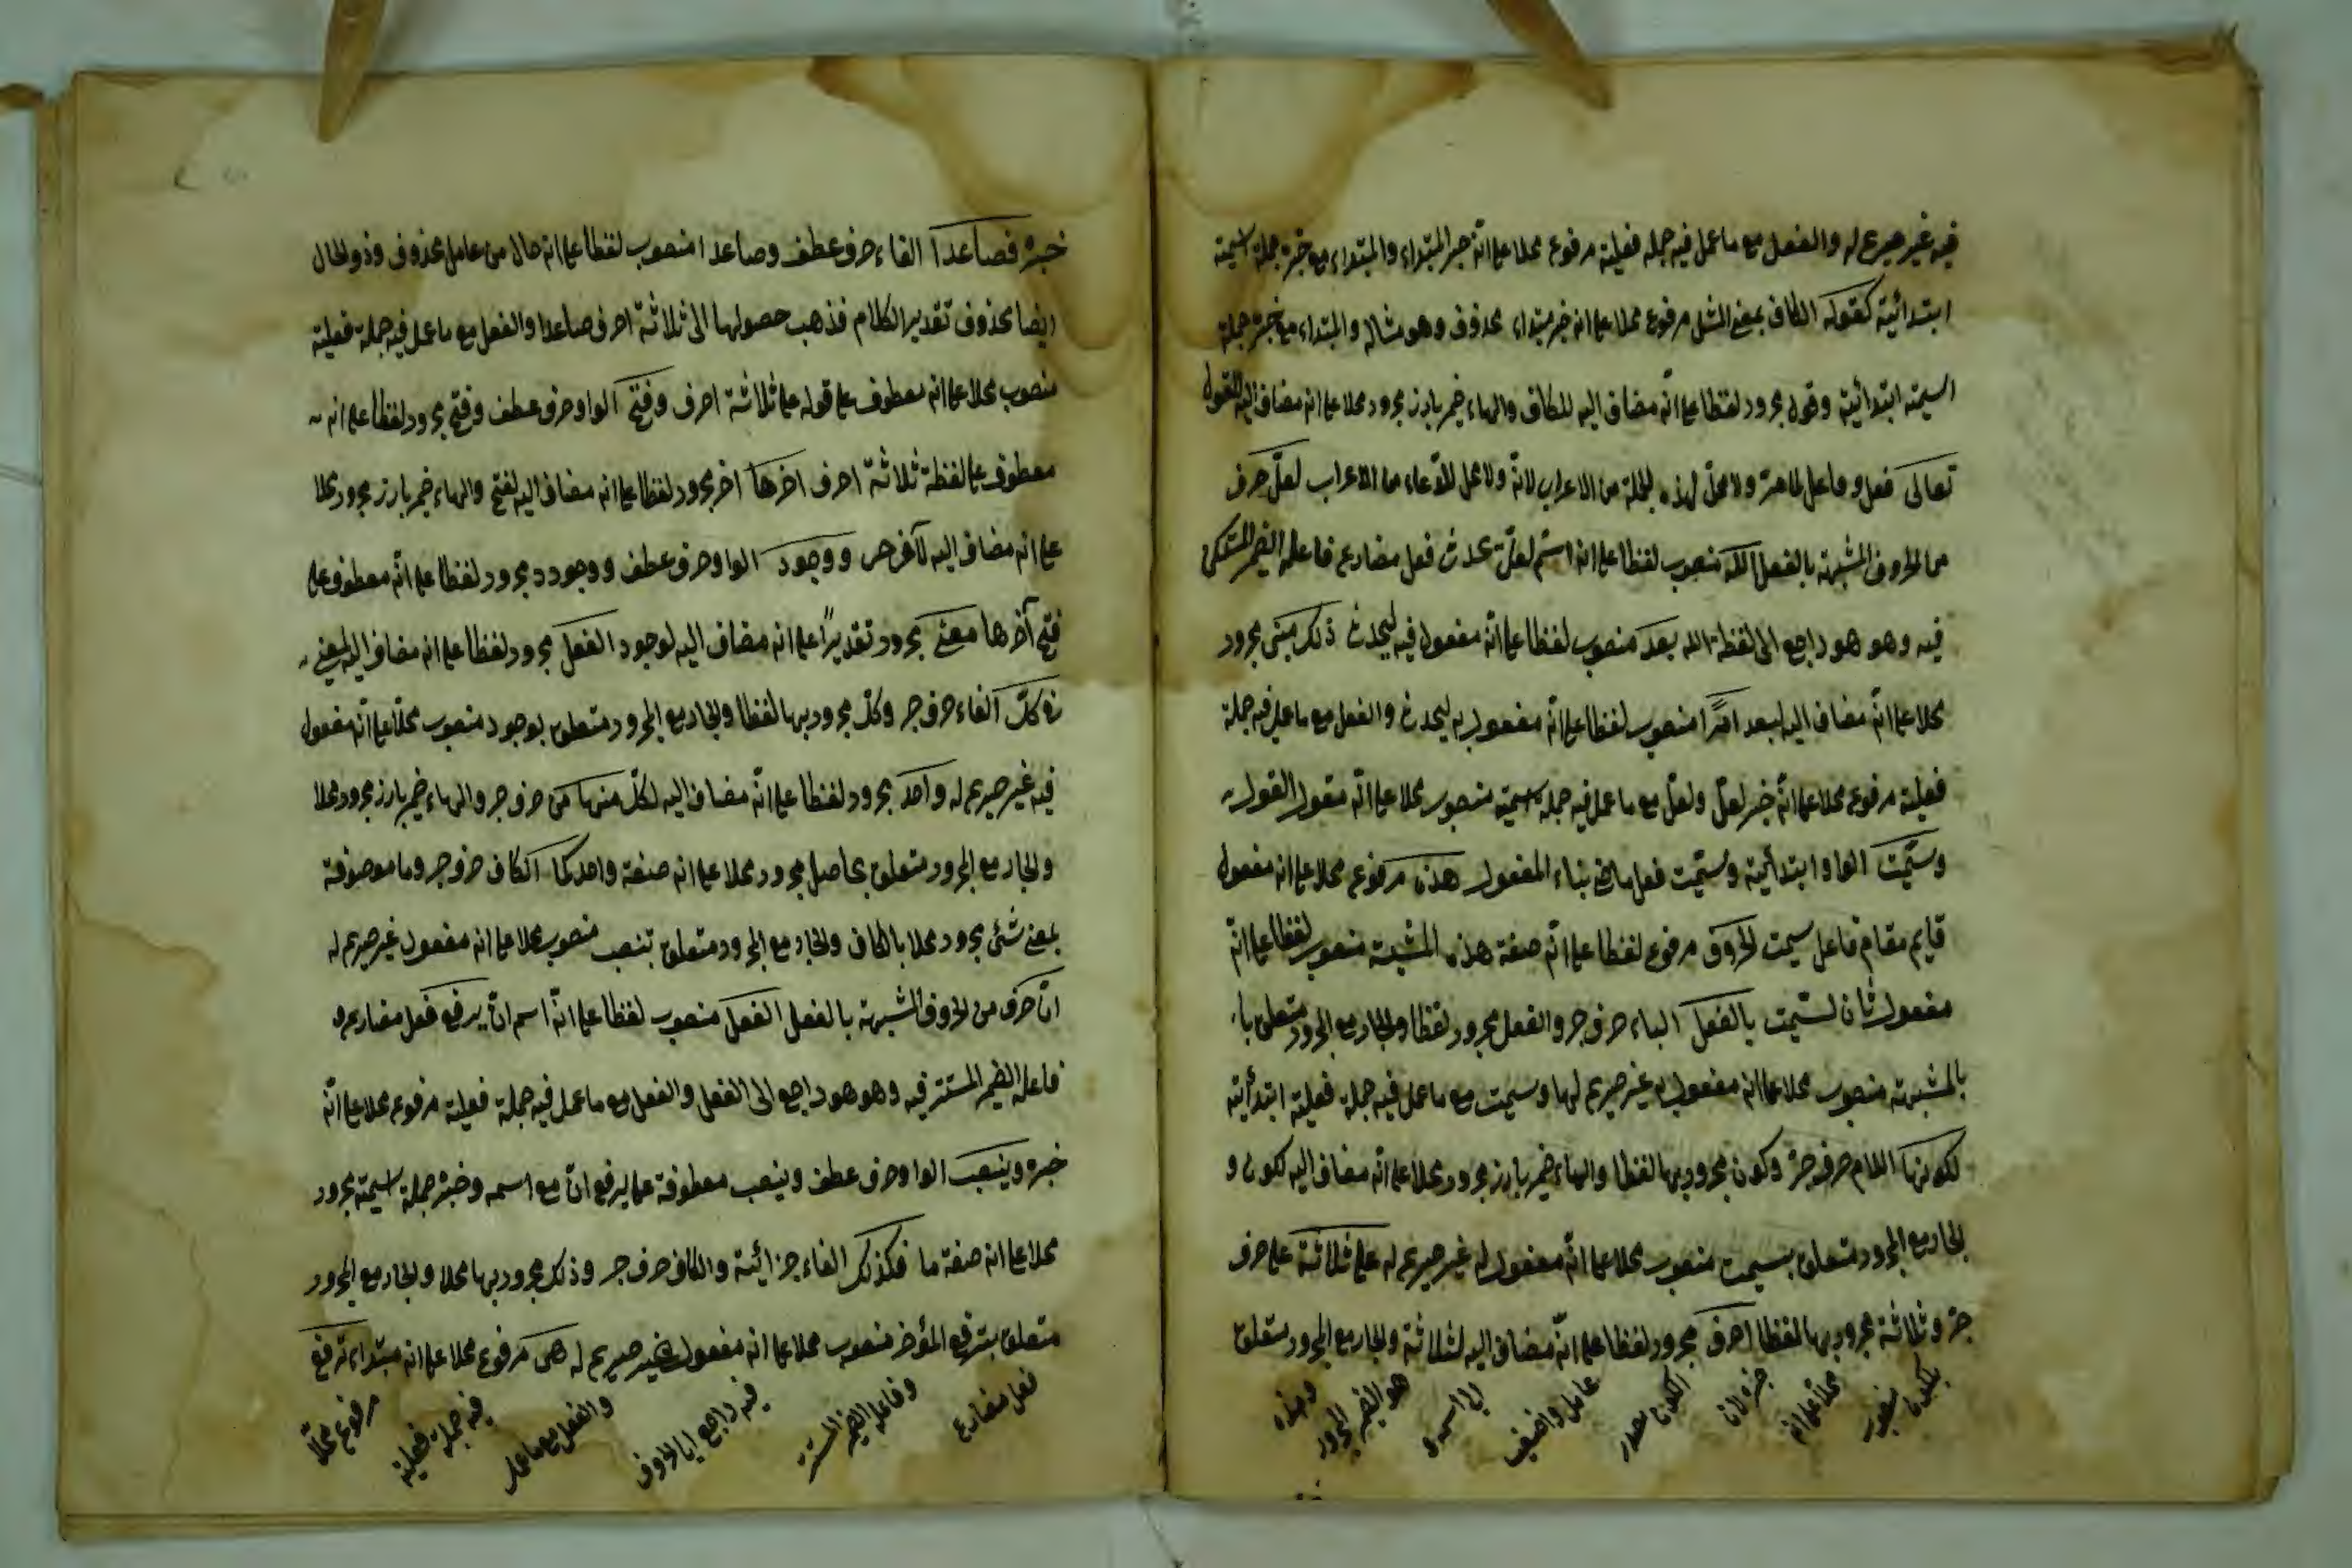 فيه غير صريح له والفعل مع ما عمل فيه جملة فعلية مرفوع محلا على انّه خبر المبتداء والمبتداء مع خبره جملة اسمية
ابتدائية كقوله الكاف بمعنى المثل مرفوع محلا على انه خبر مبتداء محذوف وهو مثاله والمبتداء مع خبره جملة
اسمية ابتدائية وقوله مجرور لفظا على انّه مضاف اليه للكاف والهاء ضمير بارز مجرور محلا على انه مضاف اليه للقول
تعالى فعل وفاعل ظاهرة ولا محلّ لهذه الجملة من الاعراب لانّه ولا محل للدّعاء من الاعراب لعلّ حرف
من الحروف المشبهة بالفعل اللّه منصوب لفظا على انه اسم لعلّ يحدث فعل مضارع فاعله الضمير المستكن
فيه وهو هو راجع الى لفظة الله بعد منصوب لفظا على انّه مفعول فيه ليحدث ذلك مبنى مجرور
محلا على انّه مضاف اليه لبعد امرًا منصوب لفظا على انّه مفعول به ليحدث والفعل مع ما عمل فيه جملة
فعلية مرفوع محلا على انّه خبر لعلّ ولعلّ مع ما عمل فيه جملة اسمية منصوب محلا على انّه مقول القول
وسمّيت الواو ابتدائية وسمّيت فعل ماض بناء المفعول هذه مرفوع محلا على انه مفعول
قايم مقام فاعل سميت الحروف مرفوع لفظا على انّه صفة هذه المشبهة منصوب لفظا على انّه
مفعول ثان لسمّيت بالفعل الباء حرف جر والفعل مجرور لفظا والجار مع المجرور متعلق با
بالمشبهة منصوب محلا على انه مفعول به غير صريح لها وسميت مع ما عمل فيه جملة فعلية ابتدائية
لكونها اللام حرف جرّ وكون مجرور بها لفظا والهاء ضمير بارز مجرور محلا على انّه مضاف اليه لكون و
الجار مع المجرور متعلق بسميت منصوب محلا على انّه مفعول له غير صريح له على ثلاثة على حرف
جرّ وثلاثة مجرور بها لفظا احرف مجرور لفظا على انّه مضاف اليه لثلاثة والجار مع المجرور متعلق
بكون منصوب
محلا على انه
خبره لان
الكون مصدر
عامل واضيف
الى اسمه و
هو الضمير المجرور
وهذه
خبره فصاعدا الفاء حرف عطف وصاعدا منصوب لفظا على انه حال من عامل محذوف وذو الحال
ايضا محذوف تقدير الكلام فذهب حصولها الى ثلاثة احرف صاعدا والفعل مع ما عمل فيه جملة فعلية
منصوب محلا على انه معطوف على قوله على ثلاثة احرف وفتح الواو حرف عطف وفتح مجرور لفظا على انه
معطوف على لفظة ثلاثة احرف اخرها اخر مجرور لفظا على انه مضاف اليه لفتح والهاء ضمير بارز مجرور محلا
على انه مضاف اليه لآخر ووجود الواو حرف عطف ووجود مجرور لفظا على انّه معطوف على
فتح آخرها معنى مجرور تقديرًا على انه مضاف اليه لوجود الفعل مجرور لفظا على انه مضاف اليه لمعنى
فى كلّ الفاء حرف جر وكلّ مجرور بها لفظا والجار مع المجرور متعلق بوجود منصوب محلا على انّه مفعول
فيه غير صريح له واحد مجرور لفظا على انّه مضاف اليه لكلّ منها من حرف جر والهاء ضمير بارز مجرور محلا
والجار مع المجرور متعلق بحاصل مجرور محلا على انه صفة واحد كما الكاف حرف جر وما موصوفة
بمعنى شئ مجرور محلا بالكاف والجار مع المجرور متعلق بتنصب منصوب محلا على انه مفعول غير صريح له
انّ حرف من الحروف المشبهة بالفعل الفعل منصوب لفظا على انّه اسم انّ يرفع فعل مضارع و
فاعله الضمير المستتر فيه وهو هو راجع الى الفعل والفعل مع ما عمل فيه جملة فعلية مرفوع محلا على انّه
خبره وينصب الواو حرف عطف وينصب معطوفة على يرفع انّ مع اسمه وخبره جملة اسمية مجرور
محلا على انه صفة ما فكذلك الفاء جزائية والكاف حرف جر وذلك مجرور بها محلا والجار مع المجرور
متعلق بترفع المؤخر منصوب محلا على انه مفعول غير صريح له هى مرفوع محلا على انه مبتداء ترفع
فعل مضارع
وفاعله الضمير المستتر
فيه راجع الى الحروف
والفعل مع ما عمل
فيه جملة فعلية
مرفوع محلّا